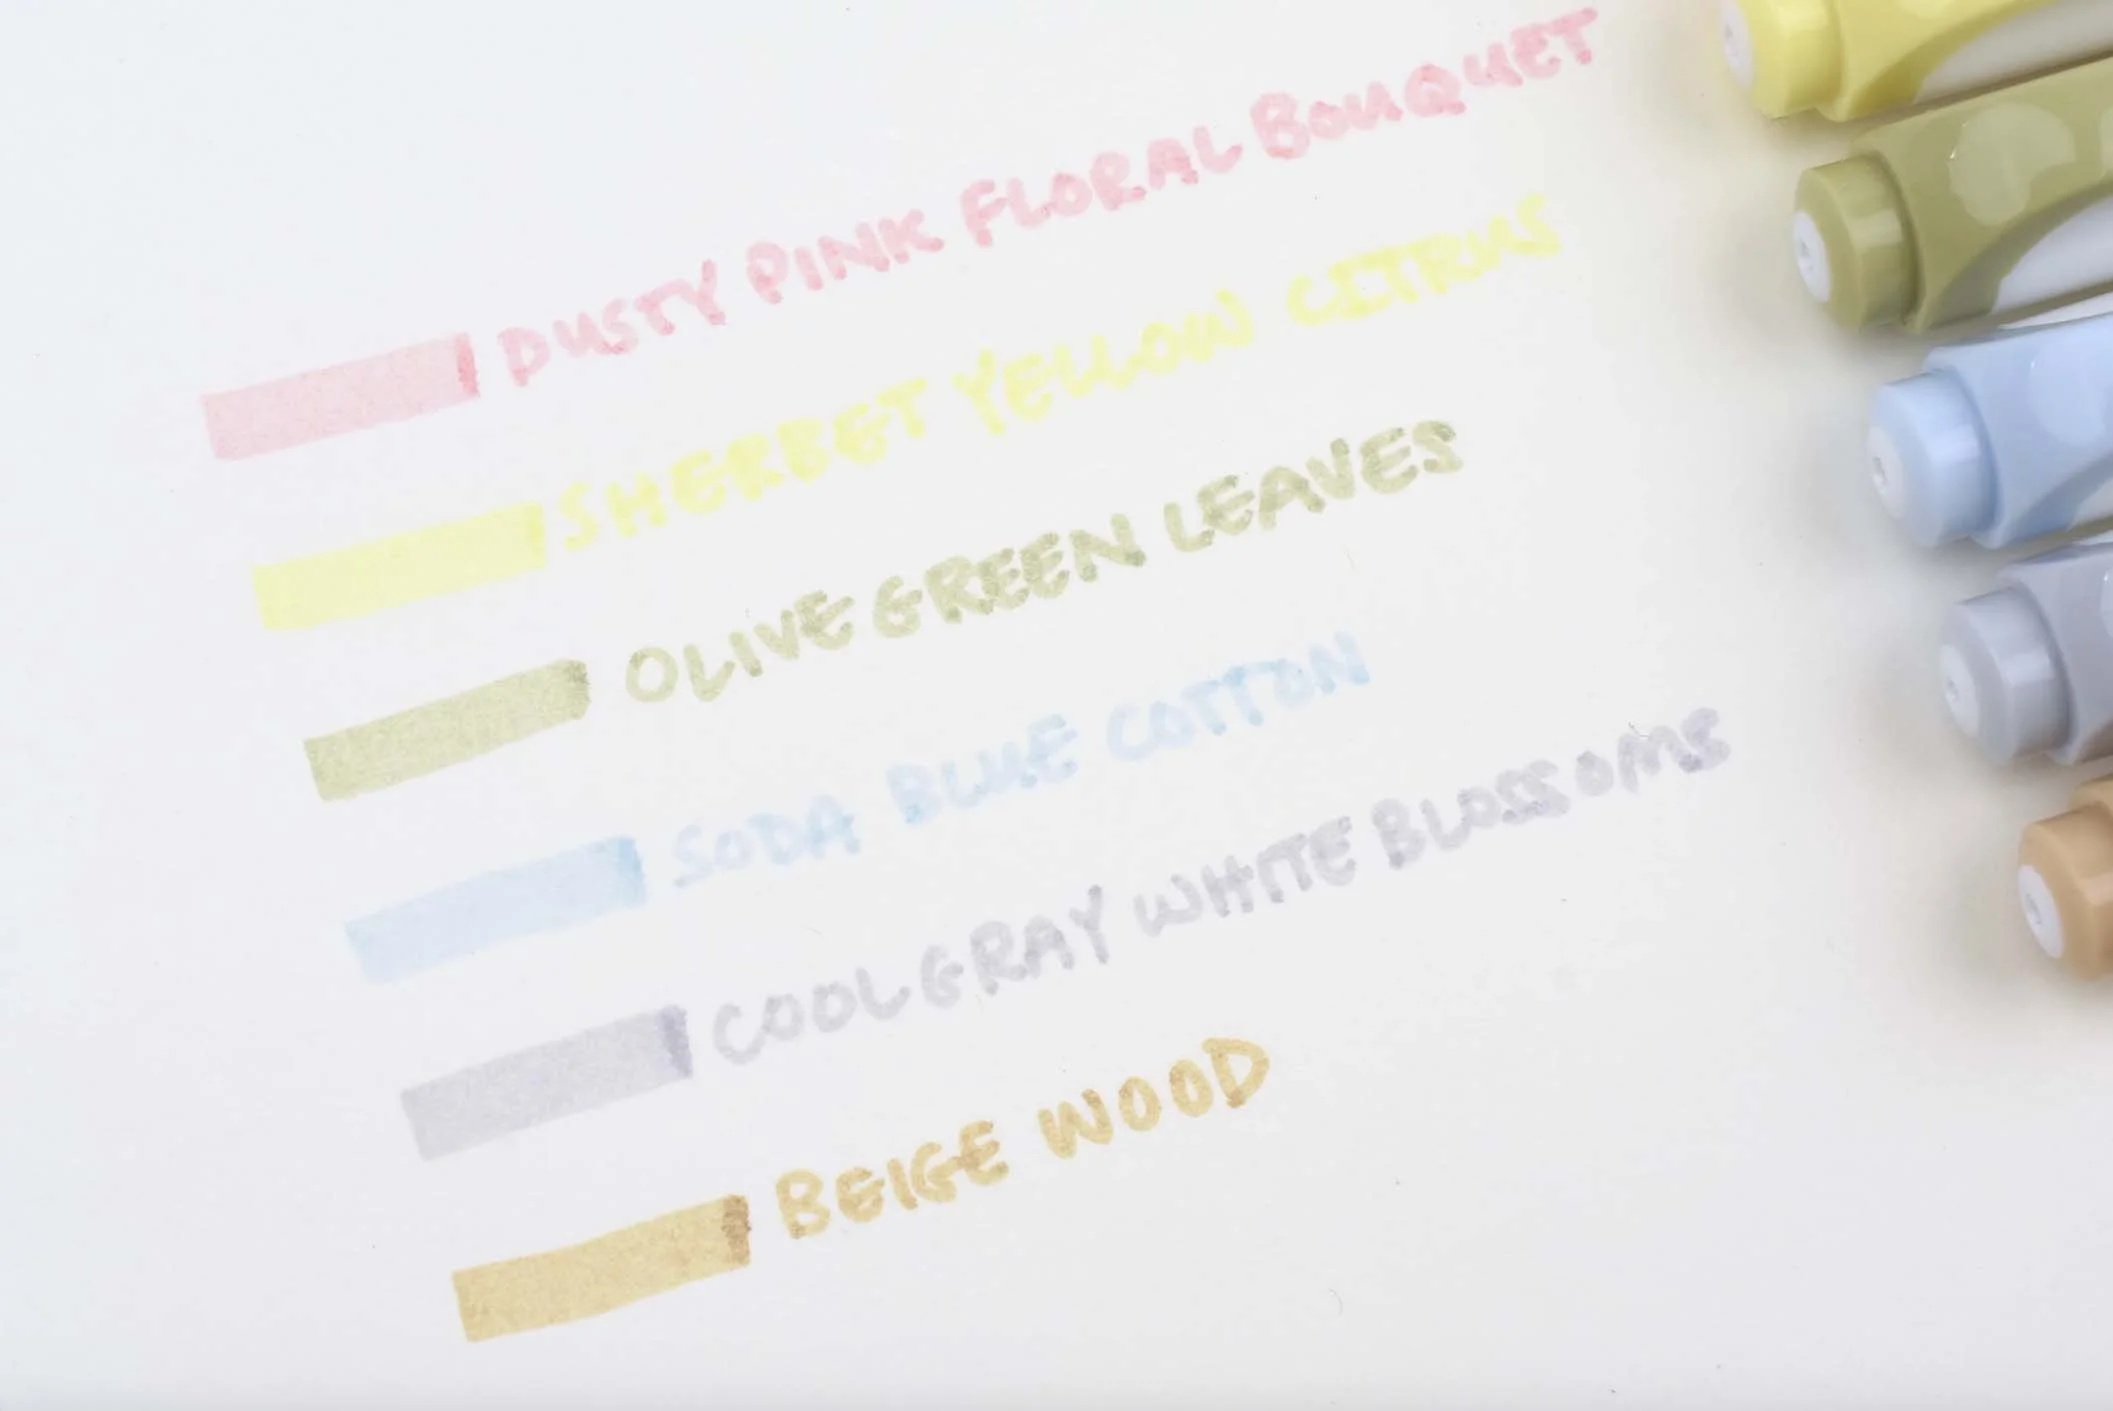 DUSTY PINK FLORAL BOUQUET
SHERBET YELLOW CITRUS
OLIVE GREEN LEAVES
SODA BLUE COTTON
COOL GRAY WHITE BLOSSOMS
BEIGE WOOD